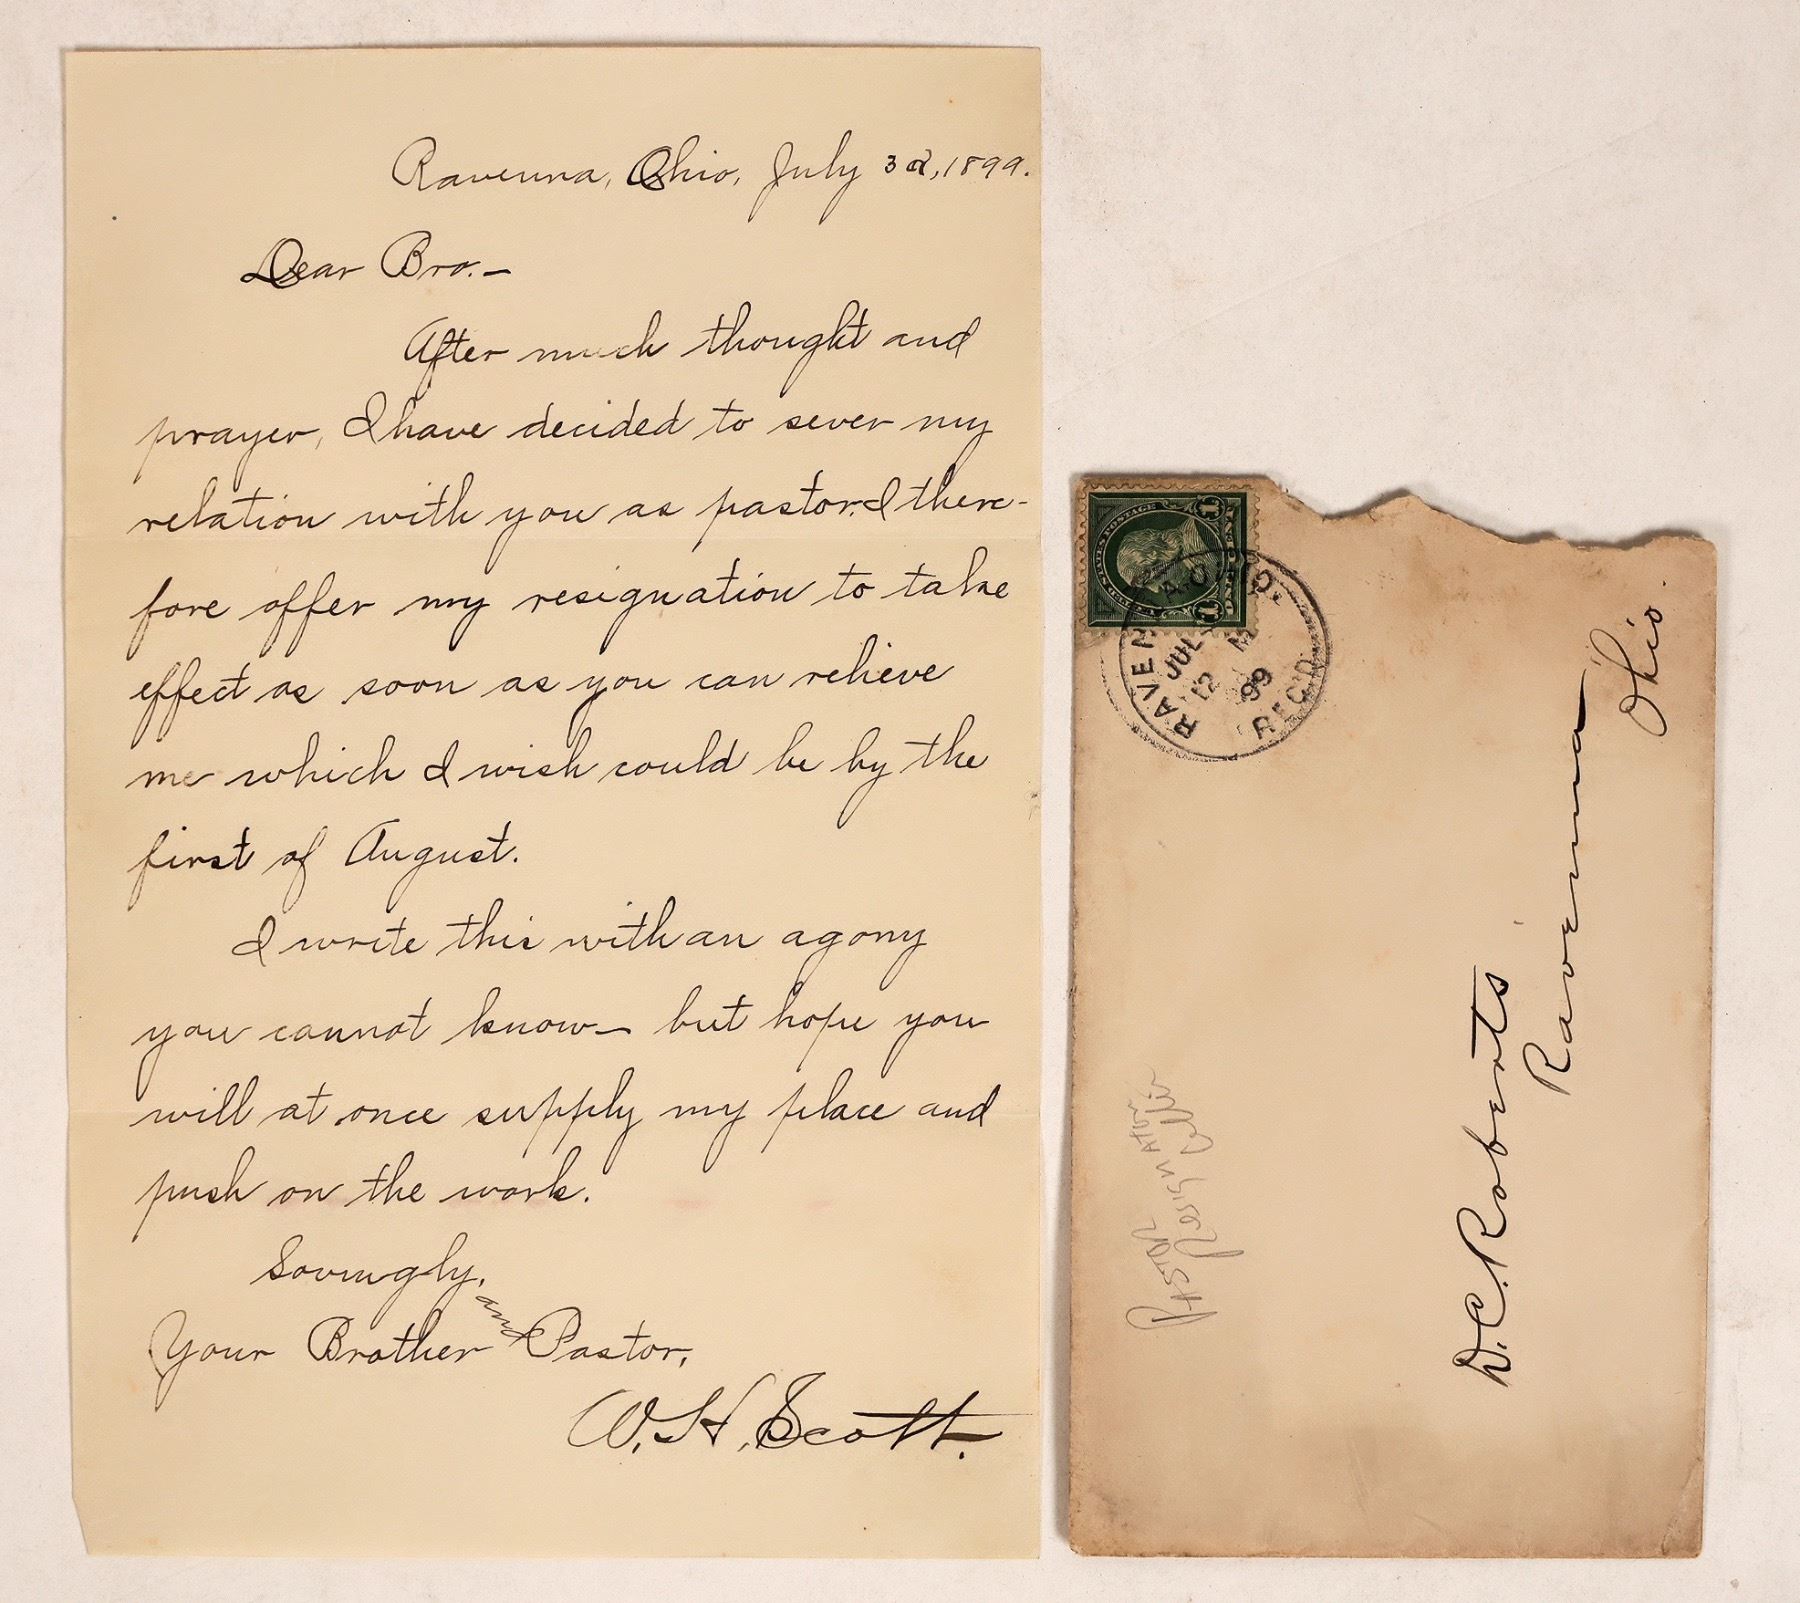 Ravenna, Ohio, July 3d, 1899.
Dear Bro.—
After much thought and
prayer, I have decided to sever my
relation with you as pastor. I there-
fore offer my resignation to take
effect as soon as you can relieve
me which I wish could be by the
first of August.
I write this with an agony
you cannot know — but hope you
will at once supply my place and
push on the work.
Lovingly,
Your Brother and Pastor,
W. H. Scott.
UNITED STATES POSTAGE
1 1
ONE CENT ONE
RAVENNA, O.
JUL
12 M
99
REC'D.
D. C. Roberts
Ravenna
Ohio.
PASTOR
Resignation